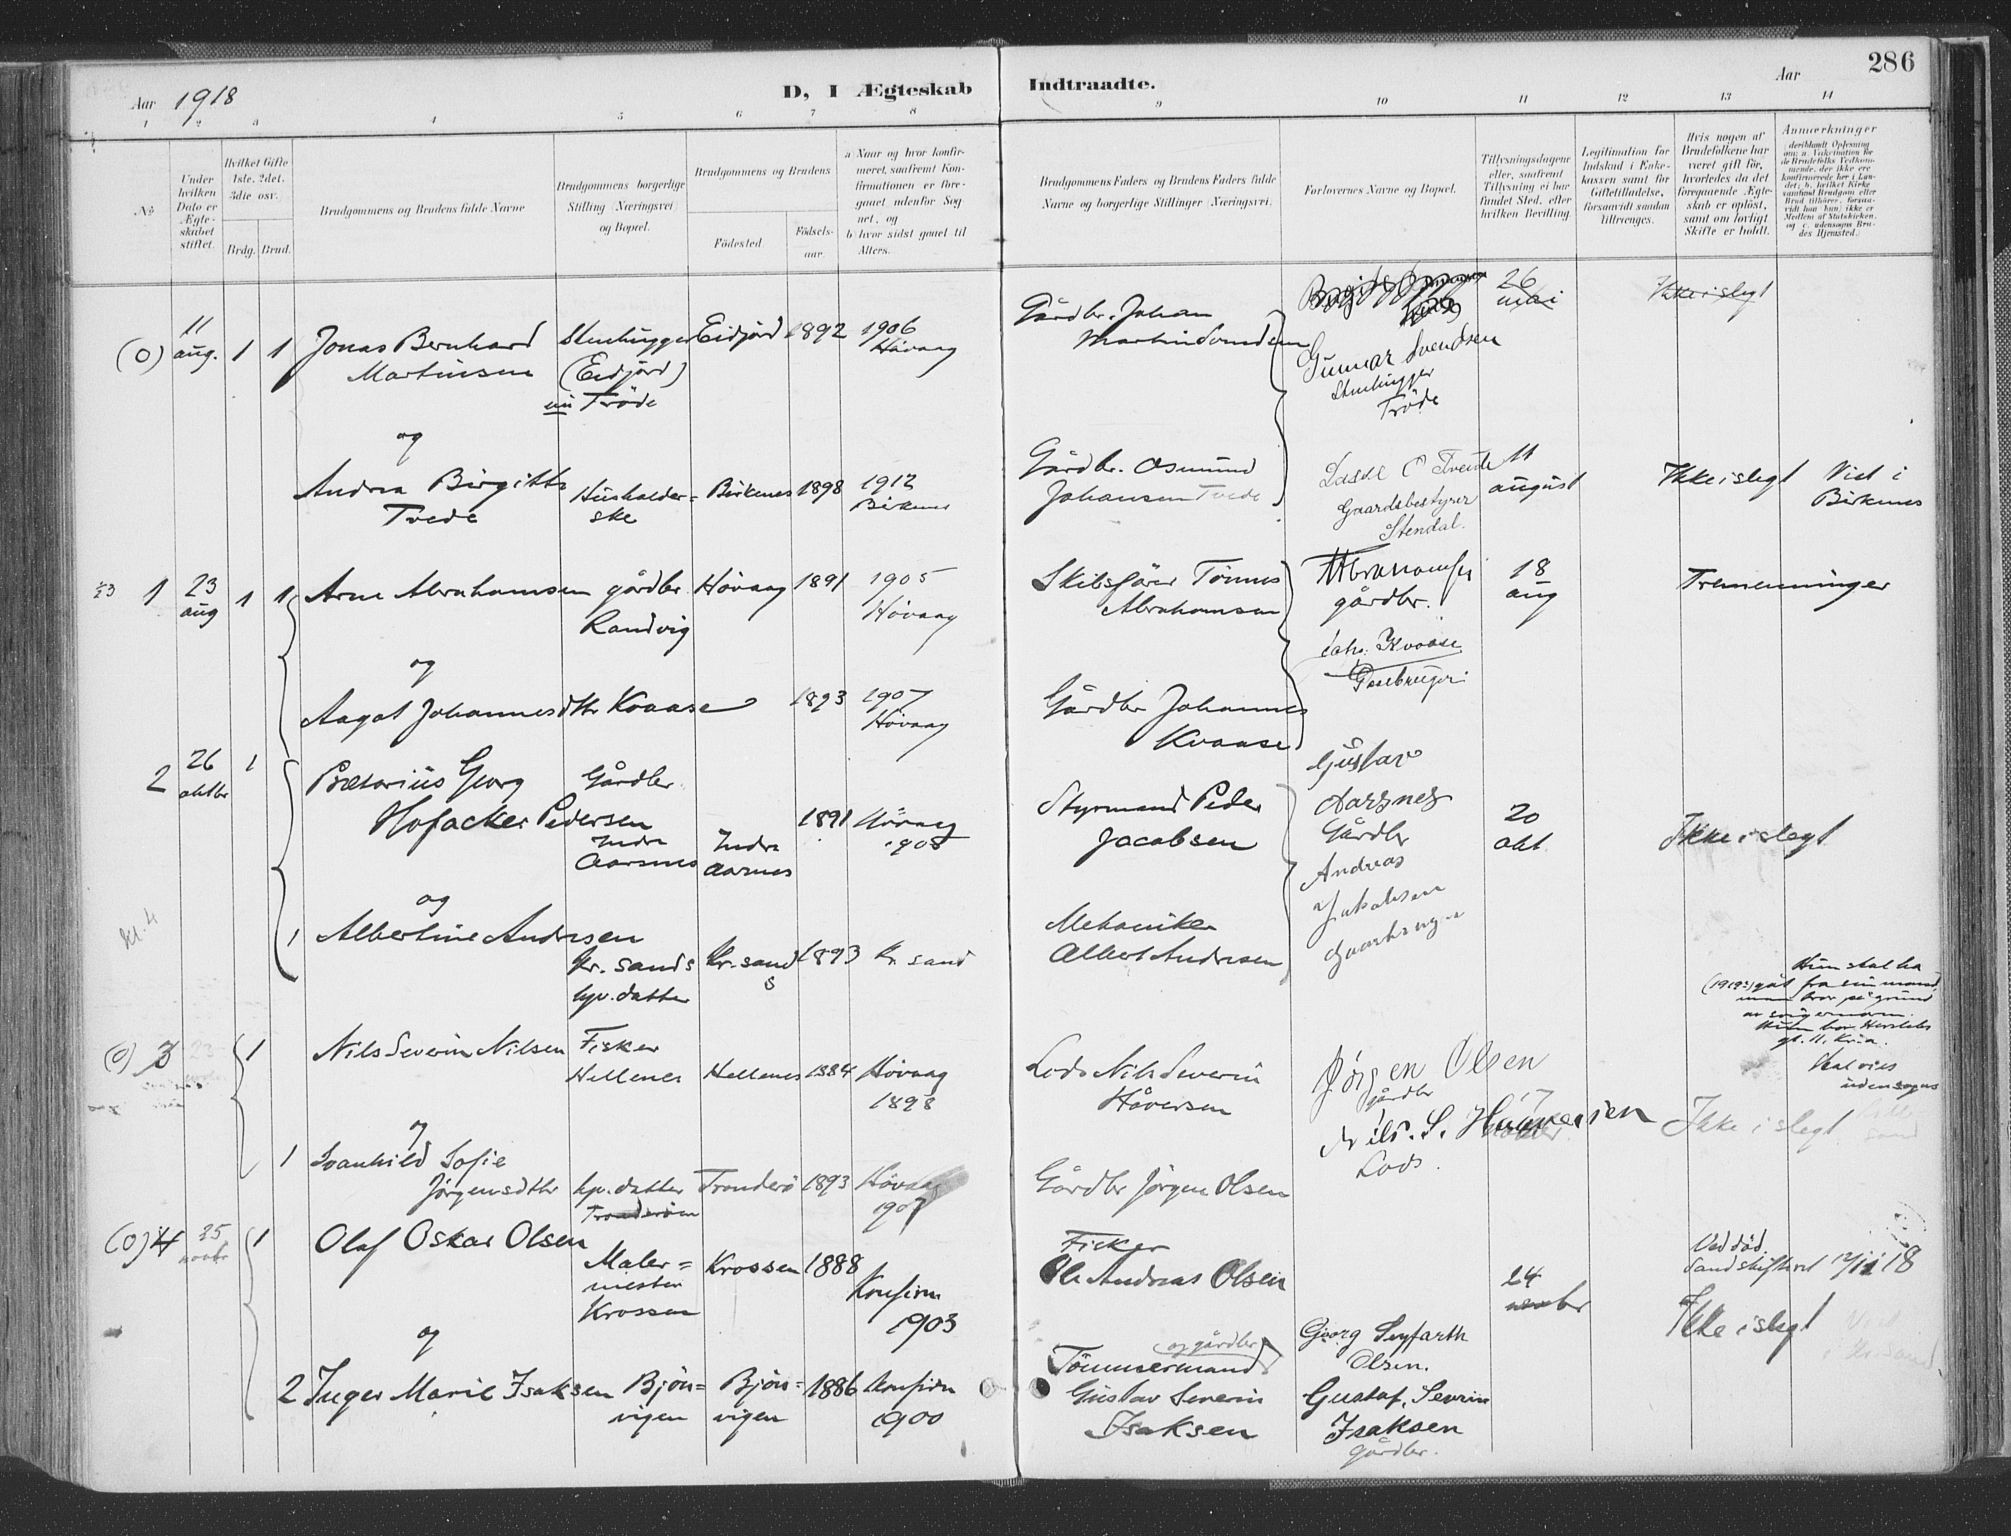 286
Aar 1918
D, I Ægteskab Indtraadte.
Aar
1 2 3 4 5 6 7 8 9 10 11 12 13 14
No
Under hvilken Dato er Ægteskabet stiftet.
Hvilket Gifte 1ste, 2det, 3die osv.
Brdg. Brud.
Brudgommens og Brudens fulde Navne
Brudgommens borgerlige Stilling (Næringsvei) og Bopæl.
Brudgommens og Brudens
Fødested.
Fødselsaar.
a Naar og hvor konfirmeret, saafremt Konfirmationen er foregaaet udenfor Sognet, og
b) hvor sidst gaaet til Alters.
Brudgommens Faders og Brudens Faders fulde Navne og borgerlige Stillinger (Næringsvei).
Forlovernes Navne og Bopæl.
Tillysningsdagene eller, saafremt Tillysning ei har fundet Sted, efter hvilken Bevilling.
Legitimation for Indskud i Enkekassen samt for Giftetilladelse, forsaavidt saadan tiltrænges.
Hvis nogen af Brudefolkene har været gift før, hvorledes da det foregaaende Ægteskab er opløst, samt om lovligt Skifte er holdt.
Anmerkninger
(0) 11 aug. 1 1 Jonas Bernhard Martinsen
Stenhugger (Eidjord) nu Tröde
Eidjord 1892 1906 Høvaag
Gårdbr. Johan Martin
26 mai
Ikke i slegt
Gunnar Svendsen
Stenhugger
Tröde
og
Andrea Birgitte Tvede
Husholderske
Birkenes 1898 1912 Birkenes
Gårdbr. Osmund Johansen Tvede
Lasse O Tveite
Gaardsbestyrer
Stendal.
11 august
Ikke i slegt
Viet i Birkenes
1 23 aug 1 1 Arne Abrahamsen gårdbr. Randvig
Høvaag 1891 1905 Høvaag
Skibsfører Tönnes Abrahamsen
T Abrahamsen
gårdbr.
18 aug
Tremenninger
og
Aagot Johannesdtr Kvaase
1893 1907 Høvaag
Gårdbr Johannes Kvaase
Johs. Kvaase
2 26 oktbr 1 Prætorius Georg Hofacker Pedersen
Gårdbr.
Indre Aarsnes
Indre Aarsnes
1891 Høvaag 1905
Styrmand Peder Jacobsen
Gustav Aarsnes
Gårdbr
20 okt
Ikke i slegt
og
kl. 4
1 Albertine Andresen
Kr. sands
hjv. datter
Kr. sand s 1893 Kr sand
Mekaniker Albert Andresen
Andreas Jakobsen
(0) 3 23 1 Nils Severin Nilsen
Fisker
Hellenes
Hellenes 1884 Høvaag 1898
Lods Nils Severin Håversen
Jörgen Olsen
gårdbr
Nils. S. Haaversen
Lods.
Ikke i slegt
Hun skal ha
(1919:) gåt fra sin mand,
Skal vies
udensogns
og
1 Svanhild Sofie Jørgensdtr
hjv. datter
Tronderö 1893 Høvaag 1907
Gårdbr Jörgen Olsen
(0) 4 25 novbr 1 Olaf Oskar Olsen
Malermester
Krossen
Krossen 1888 Konfirm 1903
Fisker
Ole Andreas Olsen
24 novbr
Ved död
Ikke i slegt
og
2 Inger Marie Isaksen
Bjönvigen
Bjönvigen 1886 Konfirm 1900
og gårdbr
Tömmermand
Gustav Severin Isaksen
Georg Seyfarth Olsen.
Gustaf. Sevrin Isaksen
gårdbr.